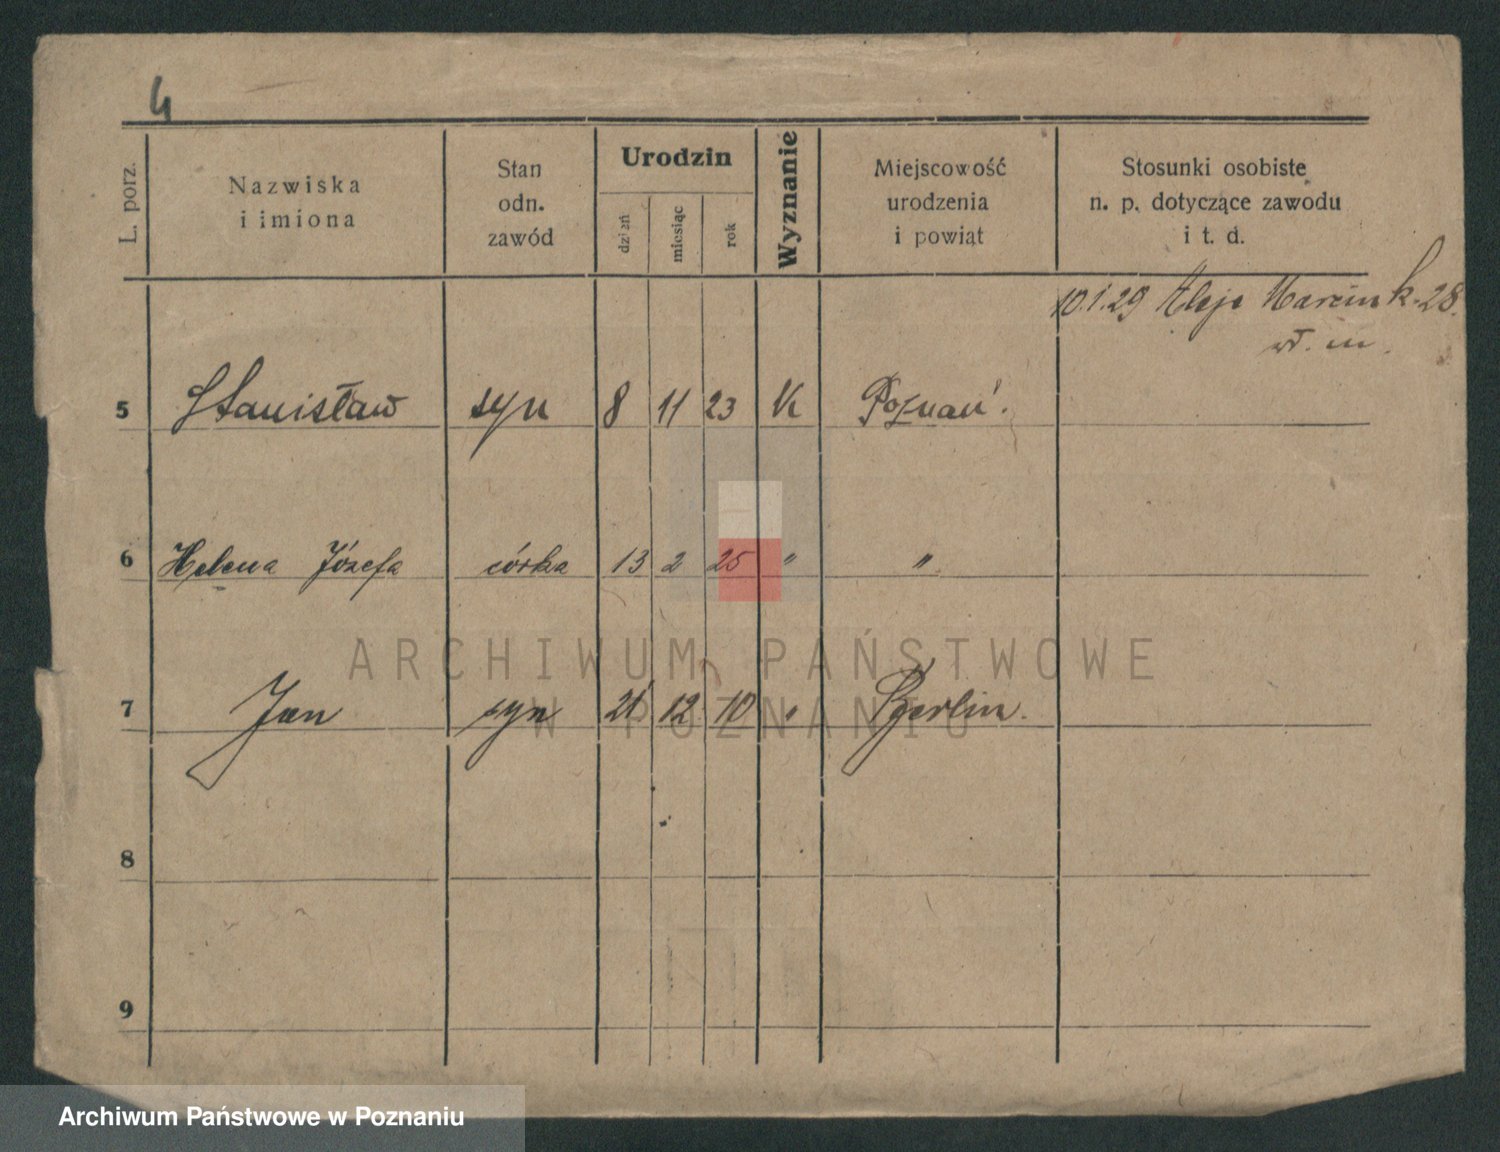 4
L. porz.
Nazwiska
i imiona
Stan
odn.
zawód
Urodzin
dzień
miesiąc
rok
Wyznanie
Miejscowość
urodzenia
i powiat
Stosunki osobiste
n. p. dotyczące zawodu
i t. d.
10.1.29 Aleje Marcink. 28.
wł. m.
5 Stanisław syn 8 11 23 K Poznań.
6 Helena Józefa córka 13 2 25 " "
7 Jan syn 21 12 10 " Berlin.
8
9
ARCHIWUM PAŃSTWOWE
W POZNANIU
Archiwum Państwowe w Poznaniu